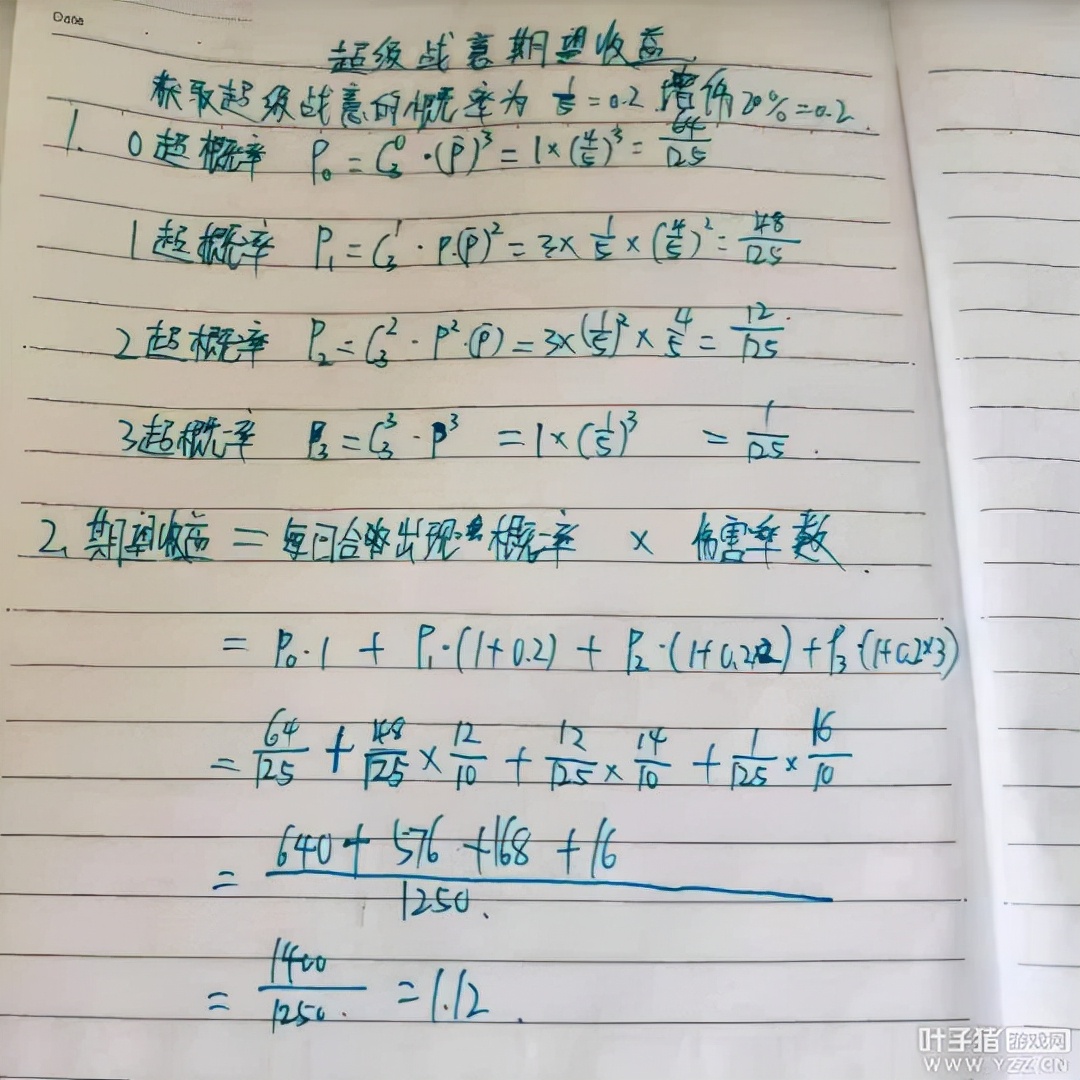 Date
超级战意期望收益
获取超级战意的概率为 1/5 = 0.2 增伤20% = 0.2
1. 0超概率 P₀ = C₃⁰·(p̄)³ = 1×(4/5)³ = 64/125
1超概率 P₁ = C₃¹·P·(p̄)² = 3×1/5×(4/5)² = 48/125
2超概率 P₂ = C₃²·P²·(p̄) = 3×(1/5)²×4/5 = 12/125
3超概率 P₃ = C₃³·P³ = 1×(1/5)³ = 1/125
2. 期望收益 = 每回合出现概率 × 伤害乘数
= P₀·1 + P₁·(1+0.2) + P₂·(1+0.2×2) + P₃·(1+0.2×3)
= 64/125 + 48/125×12/10 + 12/125×14/10 + 1/125×16/10
= (640+576+168+16)/1250
= 1400/1250 = 1.12
叶子猪游戏网
WWW.YZZ.CN